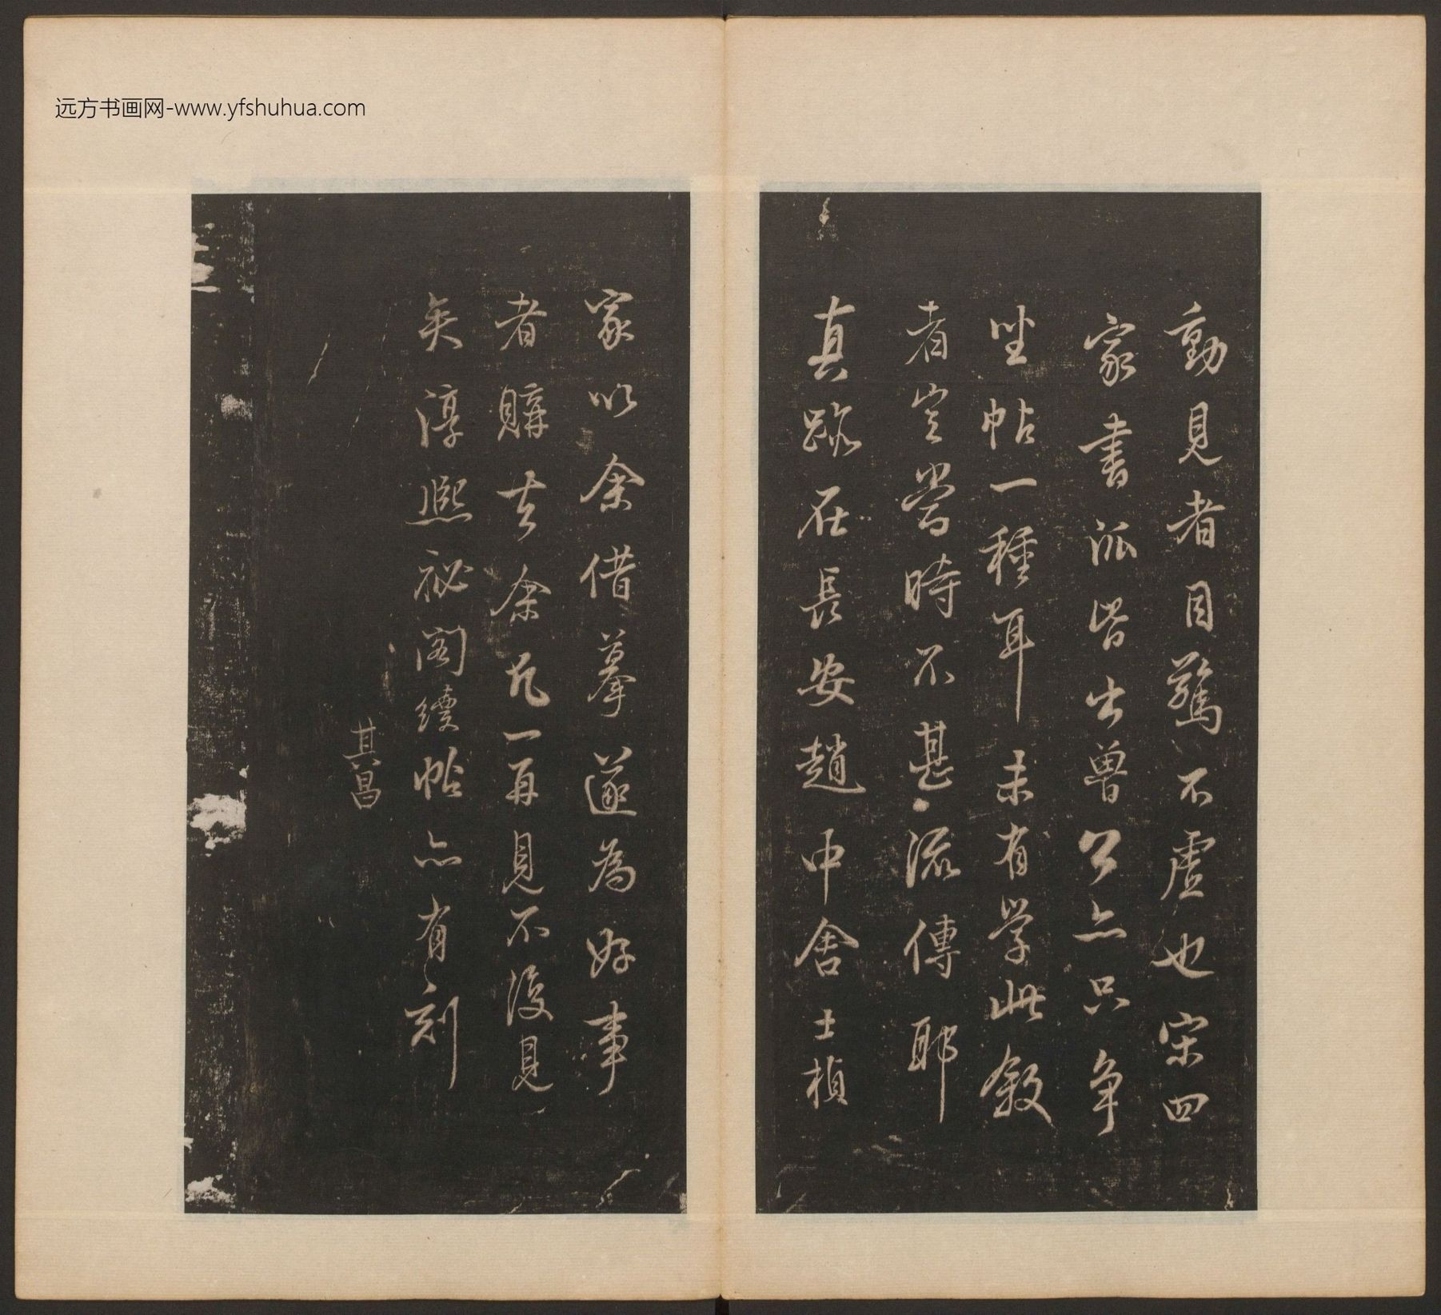 远方书画网-www.yfshuhua.com
動見者目驚不虛也宋四
家書派皆出魯公亦只爭
坐帖一種耳未有學此敘
者豈當時不甚流傳耶
真跡在長安趙中舍士楨
家以余借摹遂為好事
者購去余凡一再見不復見
矣淳熙祕閣續帖亦有刻
其昌